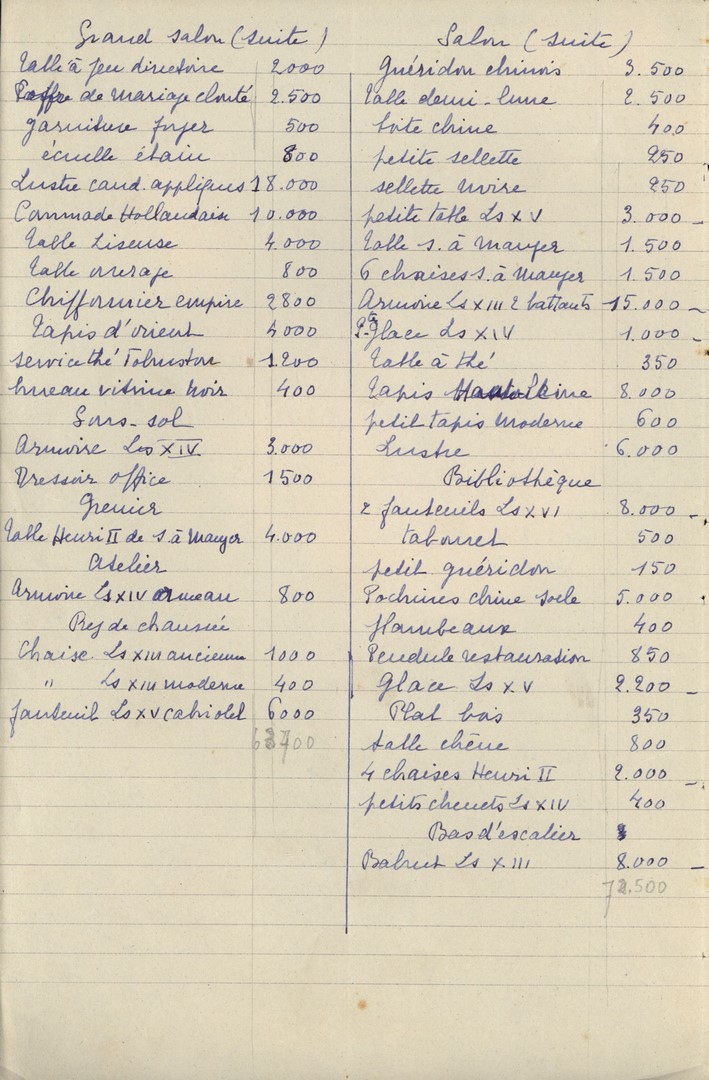 Grand salon (suite)
Table à jeu directoire 2000
Coffre de mariage clouté 2.500
garniture foyer 500
écuelle étain 800
Lustre cand. appliques 18.000
Commode Hollandaise 10.000
Table liseuse 4.000
Table ouvrage 800
Chiffonnier empire 2800
Tapis d'orient 4000
Service thé 1.200
bureau vitrine noir 400
Sous-sol
Armoire Ls XIV 3.000
Dressoir office 1500
Grenier
Table Henri II de s. à manger 4.000
Atelier
Armoire Ls XIV ormeau 800
Rez de chaussée
Chaise Ls XIII ancienne 1000
" Ls XIII moderne 400
fauteuil Ls XV cabriolet 6000
Salon (suite)
Guéridon chinois 3.500
Table demi-lune 2.500
boite chine 400
petite sellette 250
sellette noire 250
petite table Ls XV 3.000 -
Table s. à manger 1.500
6 chaises s. à manger 1.500
Armoire Ls XIII 2 battants 15.000 -
Glace Ls XIV 1.000 -
Table à thé 350
Tapis 8.000
petit tapis moderne 600
Lustre 6.000
Bibliothèque
2 fauteuils Ls XVI 8.000 -
tabouret 500
petit guéridon 150
Pochines chine socle 5.000
flambeaux 400
Pendule restauration 850
Glace Ls XV 2.200 -
Plat bois 350
table chêne 800
4 chaises Henri II 2.000 -
petits chenets Ls XIV 400
Bas d'escalier
Bahut Ls XIII 8.000 -